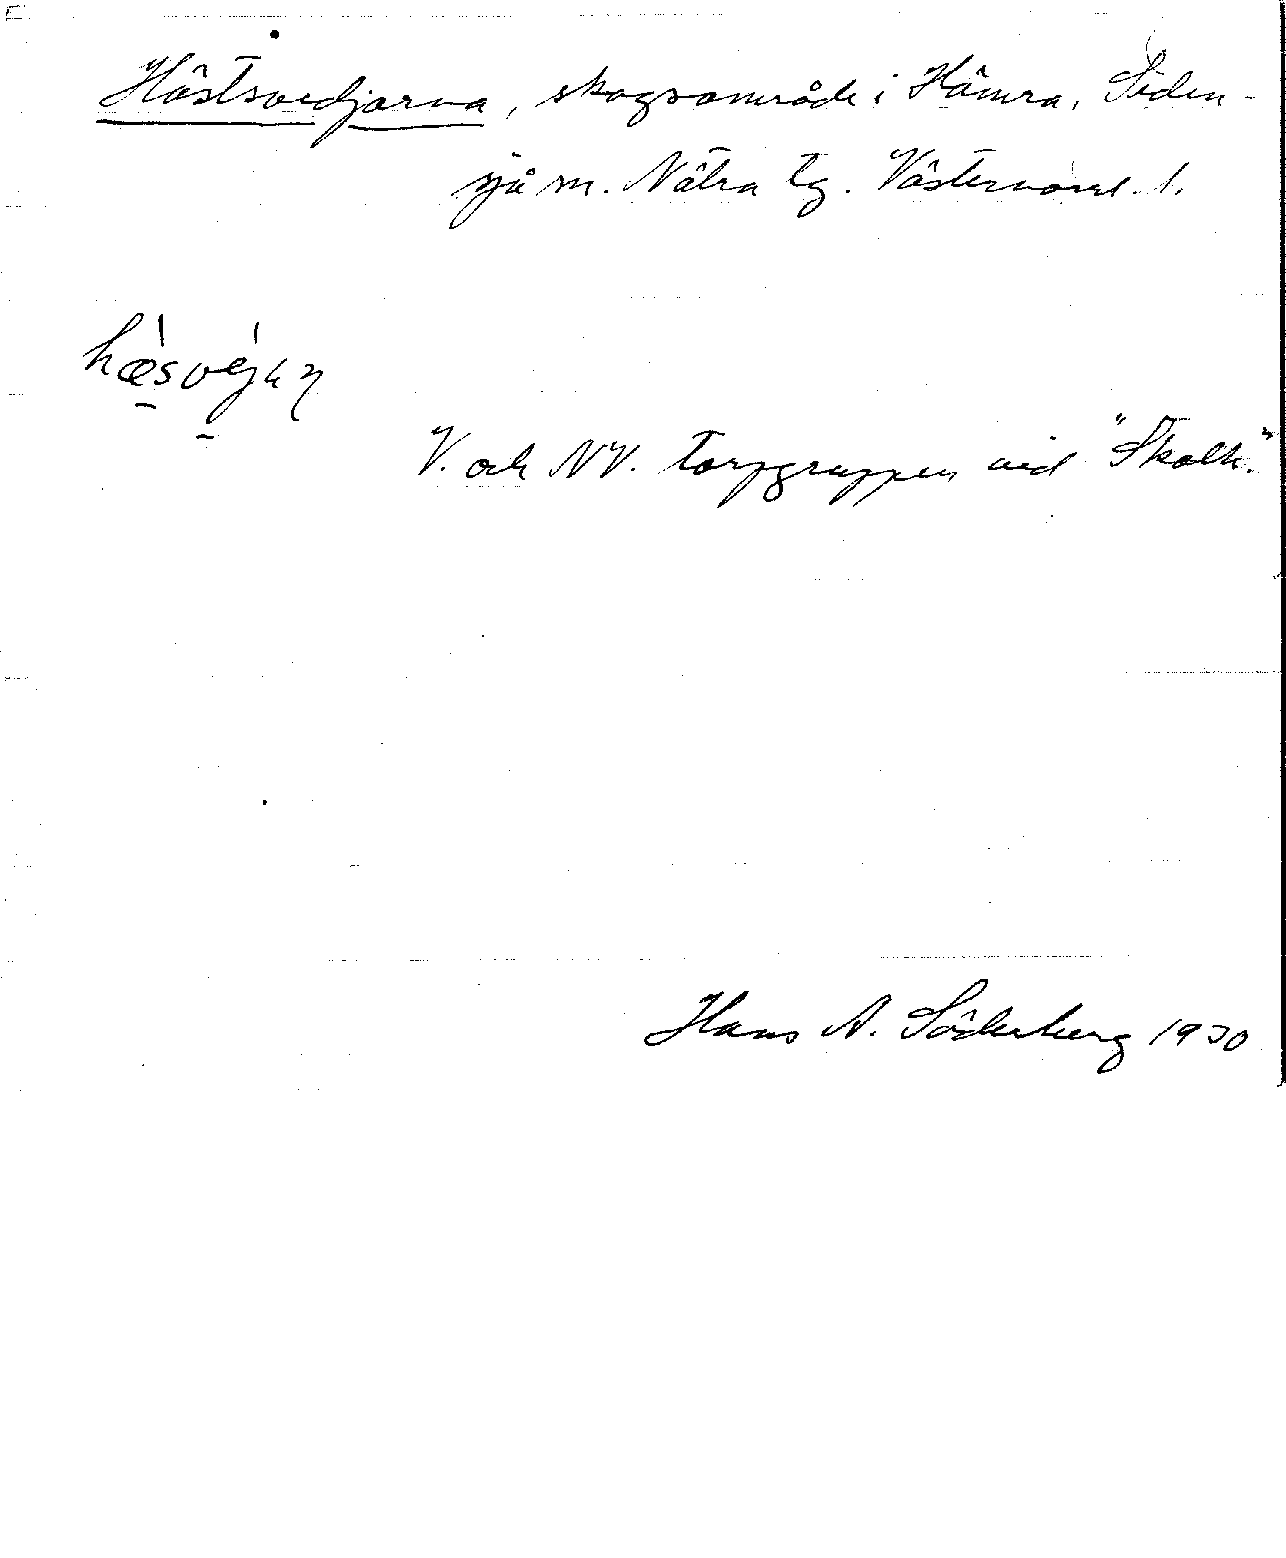 Hästsvedjarna, skogsområde i Hämra, Siden-
sjö sn. Nätra tg. Västernorrl. l.
V. och NV. torpgruppen vid "Skolh."
Hans A. Söderberg 1930